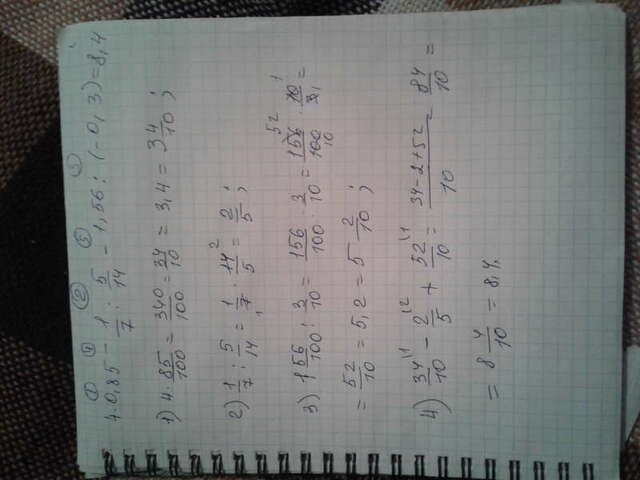 ① ④ ② ⑤ ③
4·0,85 - 1/7 : 5/14 - 1,56 : (-0,3)=8,4
1) 4·85/100 = 340/100 = 34/10 = 3,4 = 3 4/10 ;
2) 1/7 : 5/14 = 1/7 · 14/5 = 2/5 ;
3) 1 56/100 : 3/10 = 156/100 · 3/10 = 156/100 · 10/3 =
= 52/10 = 5,2 = 5 2/10 ;
4) 34/10 - 2/5 + 52/10 = 34-2+52/10 = 84/10 =
= 8 4/10 = 8,4.